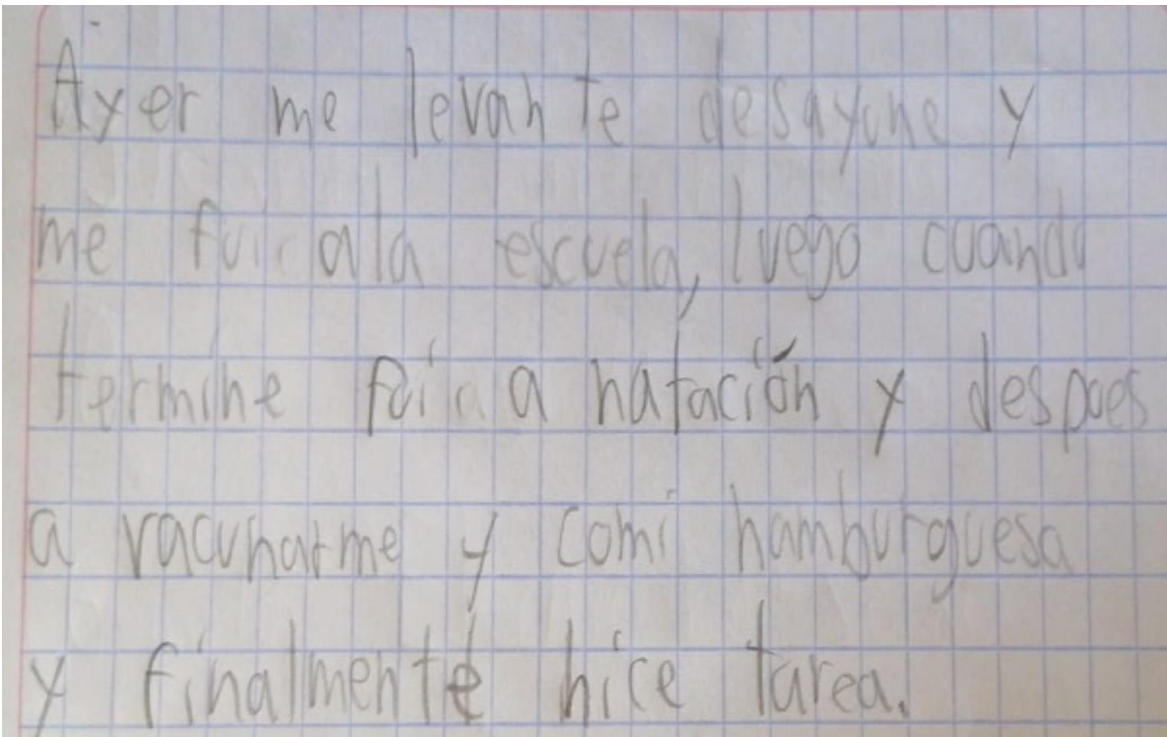 Ayer me levante desayune y
me fui ala escuela, luego cuando
termine fui a natación y despues
a vacunarme y comi hamburguesa
y finalmente hice tarea.